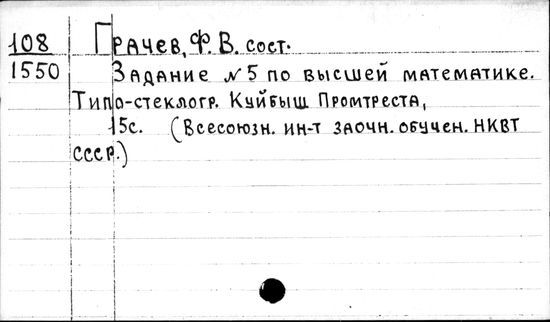 108 Грачев, Ф.В. сост.
1550 Задание №5 по высшей математике.
Типо-стеклогр. Куйбыш Промтреста,
15с. (Всесоюзн. ин-т заочн. обучен. НКВТ
СССР.)